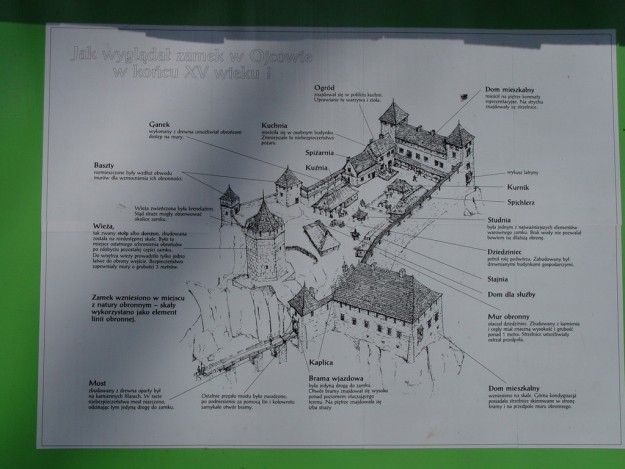 Jak wyglądał zamek w Ojcowie
w końcu XV wieku ?
Ogród
znajdował się w pobliżu kuchni.
Uprawiano tu warzywa i zioła.
Dom mieszkalny
mieścił na piętrze komnaty
reprezentacyjne. Na strychu
znajdowały się strzelnice.
Ganek
wykonany z drewna umożliwiał obrońcom
dostęp na mury.
Kuchnia
mieściła się w osobnym budynku.
Zmniejszało to niebezpieczeństwo
pożaru.
Spiżarnia
Kuźnia
Baszty
rozmieszczone były wzdłuż obwodu
murów dla wzmocnienia ich obronności.
wykusz latryny
Kurnik
Spichlerz
Wieża zwieńczona była
Stąd straże mogły obserwować
okolice zamku.
Wieża,
tak zwany stołp albo donżon, zbudowana
została na niedostępnej skale. Było to
miejsce ostatniego schronienia obrońców
po zdobyciu pozostałej części zamku.
Do wnętrza wieży prowadziło tylko jedno
łatwe do obrony wejście. Bezpieczeństwo
zapewniały mury o grubości metrów.
Studnia
była jednym z najważniejszych elementów
warownego zamku. Brak wody nie pozwalał
bowiem na dłuższą obronę.
Dziedziniec
pełnił rolę podwórza. Zabudowany był
drewnianymi budynkami gospodarczymi.
Stajnia
Dom dla służby
Zamek wzniesiono w miejscu
z natury obronnym – skały
wykorzystano jako element
linii obronnej.
Mur obronny
otaczał dziedziniec. Zbudowany z kamienia
i cegły miał znaczną wysokość i grubość
ponad 1 metra. Strzelnice umożliwiały
ostrzał przedpola.
Kaplica
Most
zbudowany z drewna oparty był
na kamiennych filarach. W razie
niebezpieczeństwa most niszczono,
odcinając tym jedyną drogę do zamku.
Ostatnie przęsło mostu było zwodzone,
po podniesieniu za pomocą lin i kołowrotu
zamykało otwór bramy.
Brama wjazdowa
była jedyną drogą do zamku.
Otwór bramy znajdował się wysoko
ponad poziomem otaczającego
terenu. Na piętrze znajdowała się
izba straży
Dom mieszkalny
wzniesiono na skale. Górna kondygnacja
posiadała strzelnice skierowane w stronę
bramy i na przedpole muru obronnego.